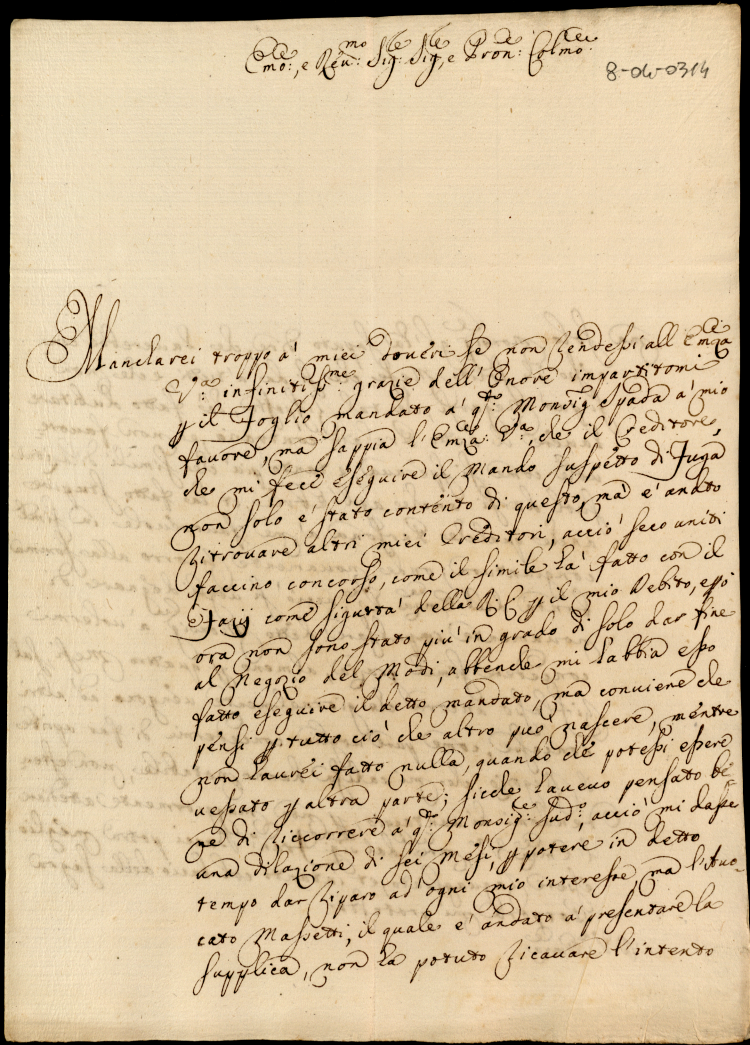 Emo:, e Reu:mo Sig:re Sig:re, e Pron: Colmo:
8-04-0314
Mancharei troppo a' miei doueri se non rendessi all' Emza
V:a infinitiss:me grazie dell' Onore impartitomi
p il Foglio mandato a' q:to Monsig: Spada a' mio
fauore, ma sappia l' Emza: V:a, che il Creditore,
che mi fece eseguire il Mando suspetto di Fuga
non solo e' stato contento di questo, ma e' andato
ritrouare altri miei Creditori, acciò seco uniti
faccino concorso, come il simile ha' fatto con il
come sigurtà della R. C. p il mio Debito, e p ò
ora non sono stato più in grado di solo dar fine
al Negozio del Modi, abbenche mi habbia esso
fatto eseguire il detto mandato, ma conuiene che
pensi p tutto ciò che altro può nascere, mentre
non haurei fatto nulla, quando che potessi essere
vessato p altra parte; siche haueuo pensato be-
ne di riccorrere a' q:to Monsig:re sud:o, acciò mi dasse
una dilazione di sei Mesi, p potere in detto
tempo dar riparo ad' ogni mio interesse, ma l' Auo-
cato Massetti, il quale e' andato a' presentare la
supplica, non ha potuto ricauare l' intento